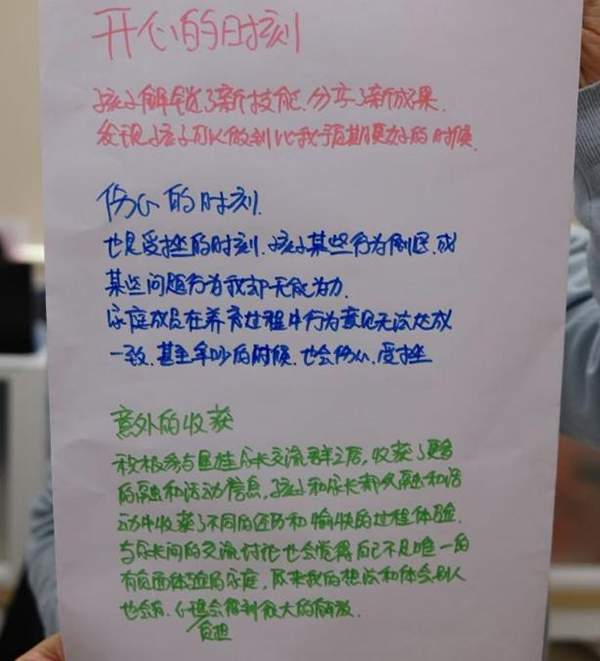 开心的时刻
孩子解锁了新技能、分享了新成果.
发现孩子可以做到比我预期更好的时候.
伤心的时刻.
也是受挫的时刻.孩子某些行为倒退.或
某些问题行为我却无能为力.
家庭成员在养育过程中行为意见无法达成
一致.甚至争吵的时候.也会伤心.受挫
意外的收获
积极参与星娃家长交流群之后,收获了更多
的融和活动信息,孩子和家长都从融和活
动中收获了不同的经历和愉快的过程体验.
与家长间的交流讨论也会觉得自己不是唯一的
有负面体验的家庭,原来我的想法和体会别人
也会有.心理会得到很大的解放.
负担